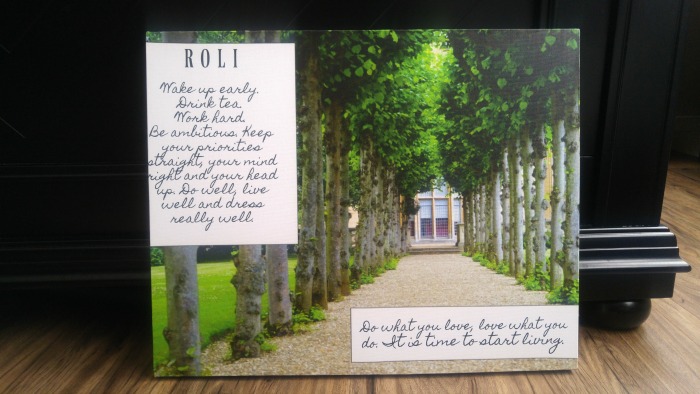 ROLI
Wake up early.
Drink tea.
Work hard.
Be ambitious. Keep
your priorities
straight, your mind
right and your head
up. Do well, live
well and dress
really well.
Do what you love, love what you
do. It is time to start living.